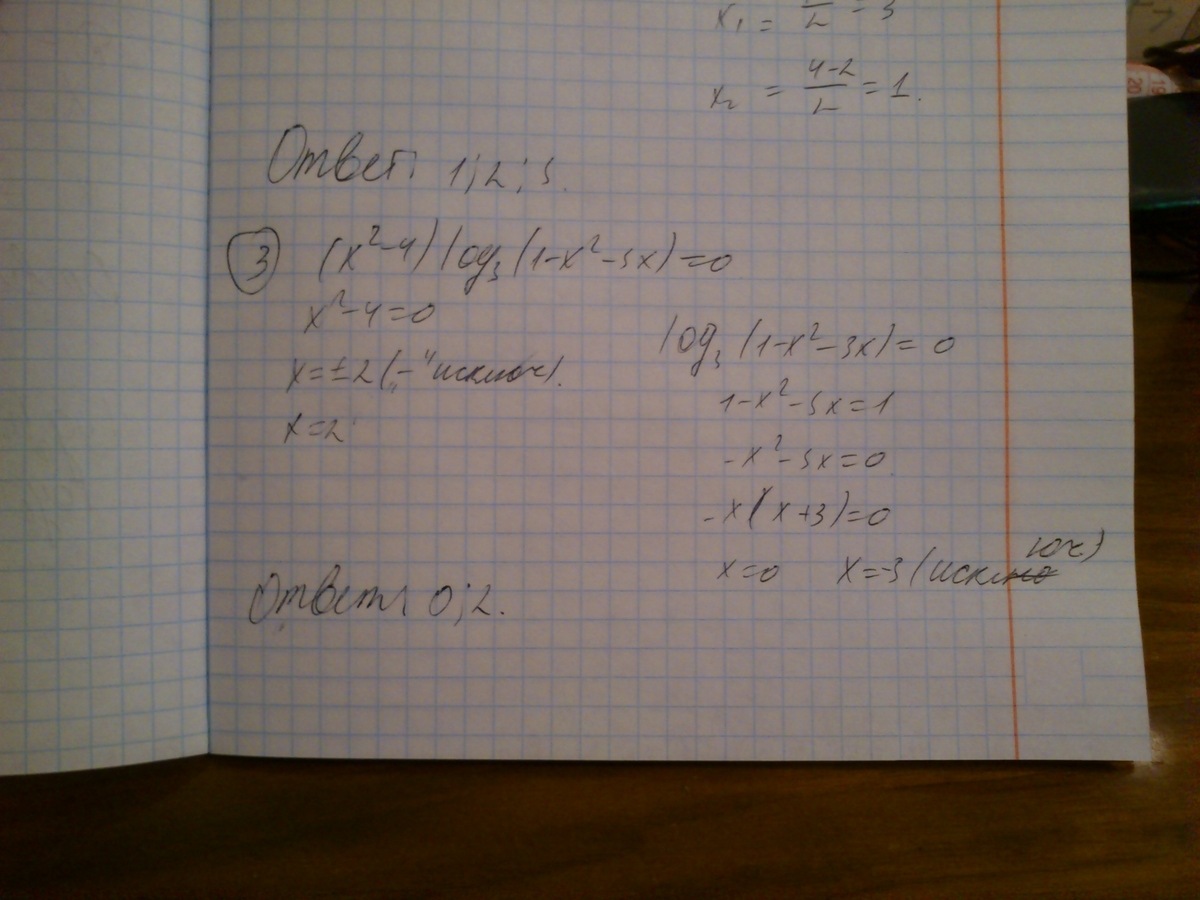 x₁ = /2 = 3
x₂ = (4-2)/2 = 1.
Ответ: 1; 2; 3.
③ (x²-4) log₃(1-x²-3x)=0
x²-4=0
x=±2 („-“ исключ).
x=2
log₃(1-x²-3x)=0
1-x²-3x=1
-x²-3x=0
-x(x+3)=0
x=0 x=-3 (исключ)
Ответ: 0; 2.
20 19